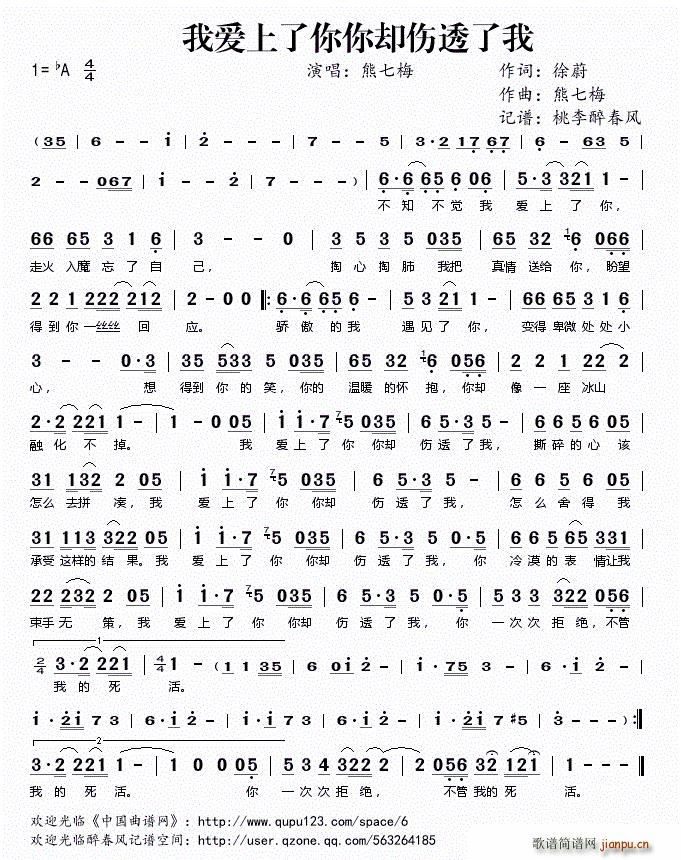 我爱上了你你却伤透了我
1=♭A 4/4 演唱：熊七梅 作词：徐蔚
作曲：熊七梅
记谱：桃李醉春风
(35 | 6 - - i | 2 - - - | 7 - - 5 | 3·2 17 67 | 6 - 63 5 |
2 - - 067 | i - - 2 | 7 - - - ) | 6·6 65 6 06 | 5·3 321 1 - |
不知不觉我 爱上了你，
66 65 3 1 6 | 3 - - 0 | 3 5 3 5 035 | 65 32 6 066 |
走火入魔忘了自己， 掏心掏肺 我把 真情送给你，盼望
2 2 1 222 212 | 2 - 0 0 |: 6·6 65 6 - | 5 3 21 1 - | 66 65 31 6 |
得到你一丝丝回应。 骄傲的我 遇见了你， 变得卑微处处小
3 - - 0·3 | 35 533 5 035 | 65 322 6 056 | 2 2 1 22 2 |
心， 想 得到你的笑，你的 温暖的怀抱，你却 像一座冰山
2·2 221 1 - | 1 - 0 05 | i i·7 5 035 | 6 5·3 5 - | 66 5 6 05 |
融化不掉。 我 爱上了你 你却 伤透了我， 撕碎的心该
31 132 2 05 | i i·7 5 035 | 6 5·3 5 - | 6 6 5 6 05 |
怎么去拼凑，我 爱上了你 你却 伤透了我， 怎么舍得我
31 113 322 05 | i i·7 5 035 | 6 5·3 5 0·5 | 6 6 5 6 035 |
承受这样的结果。我 爱上了你 你却 伤透了我，你 冷漠的表 情让我
22 232 2 05 | i i·7 5 035 | 6 5·3 5 05 | 2 2 2 1 056 |
束手无策，我 爱上了你 你却 伤透了我，你 一次次拒绝，不管
1
2/4 3·2 221 | 4/4 1 - (1 1 35 | 6 0i 2 - | i·75 3 - |
我的死活。
i·2i 7 3 | 6·i 2 - | 2·2i 7 #5 | 3 - - - ) :|
2
3·2 221 | 1 - - - | 1 0 0 05 | 2 2 2 2 | 2 0 056 | 32 2 121 | 1 - - - ‖
我的死活。 你 一次次拒绝， 不管我的死活。
欢迎光临《中国曲谱网》：http://www.qupu123.com/space/6
欢迎光临醉春风记谱空间：http://user.qzone.qq.com/563264185
歌谱简谱网
jianpu.cn